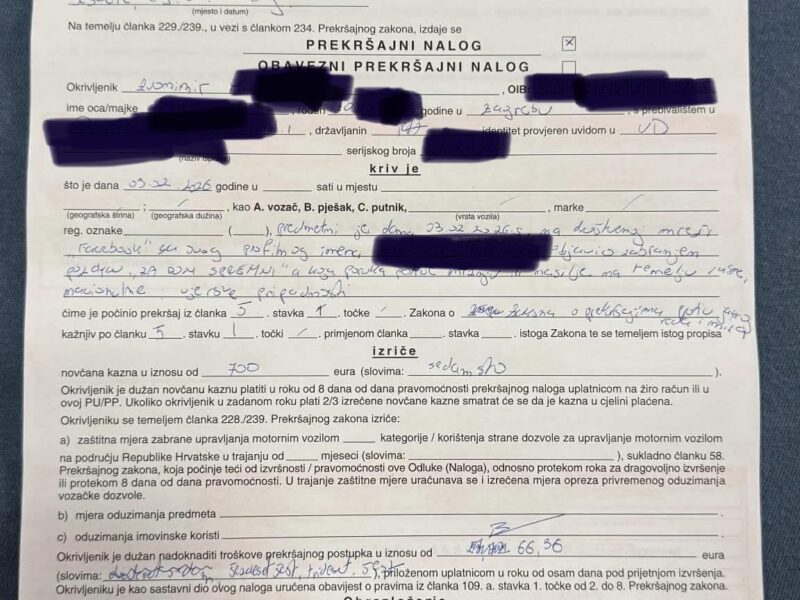 (mjesto i datum)
Na temelju članka 229./239., u vezi s člankom 234. Prekršajnog zakona, izdaje se
PREKRŠAJNI NALOG
OBAVEZNI PREKRŠAJNI NALOG
Okrivljenik Zvonimir , OIB
ime oca/majke , rođen godine u Zagrebu , s prebivalištem u
, državljanin RH identitet provjeren uvidom u VD
(naziv isprave) serijskog broja
kriv je
što je dana 03 02 2026 godine u sati u mjestu
: , kao A. vozač, B. pješak, C. putnik, , marke
(geografska širina) (geografska dužina) (vrsta vozila)
reg. oznake ( ), predmetni je dana 03 02 2026.g. na društvenoj mreži
"Facebook" sa svog profilnog imena, objavio
pozdrav "ZA DOM SPREMNI" a koja poruka mržnju i nasilje na temelju rasne,
nacionalne vjerske pripadnosti
čime je počinio prekršaj iz članka 5 . stavka 1 . točke / . Zakona o zakona o prekršajima protiv javnog
reda i mira
kažnjiv po članku 5 . stavku 1 . točki / . primjenom članka . stavka . istoga Zakona te se temeljem istog propisa
izriče
novčana kazna u iznosu od 700 eura (slovima: sedamsto ).
Okrivljenik je dužan novčanu kaznu platiti u roku od 8 dana od dana pravomoćnosti prekršajnog naloga uplatnicom na žiro račun ili u
ovoj PU/PP. Ukoliko okrivljenik u zadanom roku plati 2/3 izrečene novčane kazne smatrat će se da je kazna u cjelini plaćena.
Okrivljeniku se temeljem članka 228./239. Prekršajnog zakona izriče:
a) zaštitna mjera zabrane upravljanja motornim vozilom kategorije / korištenja strane dozvole za upravljanje motornim vozilom
na području Republike Hrvatske u trajanju od mjeseci (slovima: ), sukladno članku 58.
Prekršajnog zakona, koja počinje teći od izvršnosti / pravomoćnosti ove Odluke (Naloga), odnosno protekom roka za dragovoljno izvršenje
ili protekom 8 dana od dana pravomoćnosti. U trajanje zaštitne mjere uračunava se i izrečena mjera opreza privremenog oduzimanja
vozačke dozvole.
b) mjera oduzimanja predmeta
c) oduzimanja imovinske koristi
Okrivljenik je dužan nadoknaditi troškove prekršajnog postupka u iznosu od 66,36 eura
(slovima: šezdeset šest, trideset i šest), priloženom uplatnicom u roku od osam dana pod prijetnjom izvršenja.
Okrivljeniku je kao sastavni dio ovog naloga uručena obavijest o pravima iz članka 109. a. stavka 1. točke od 2. do 8. Prekršajnog zakona.